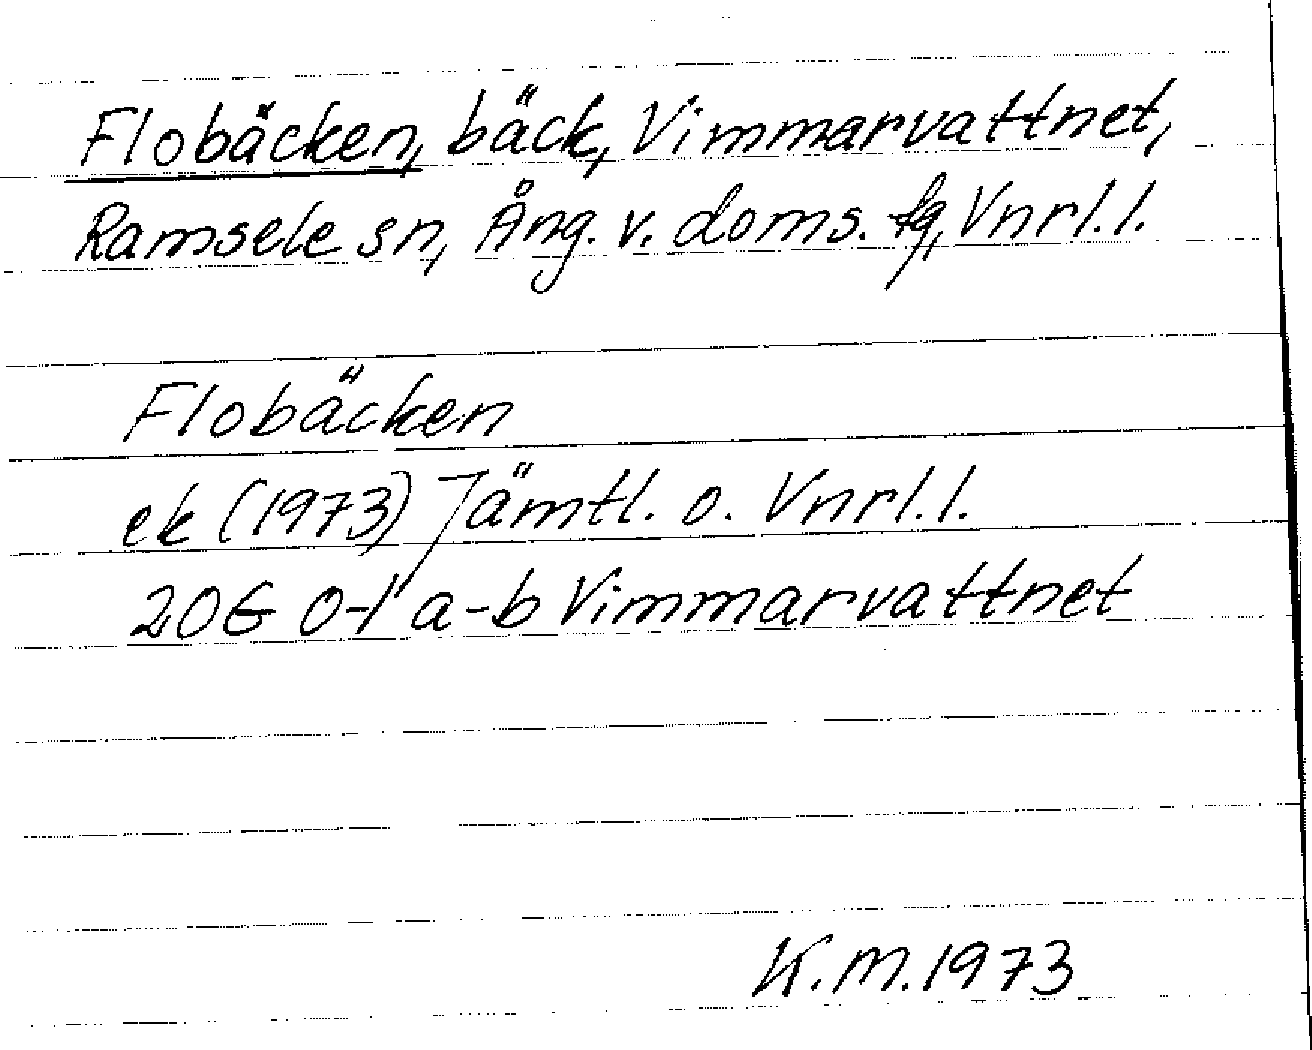 Flobäcken, bäck, Vimmarvattnet,
Ramsele sn, Ång. v. doms. fg, Vnrl.l.
Flobäcken
ek (1973) Jämtl. o. Vnrl.l.
20G 0-1 a-b Vimmarvattnet
K.M.1973